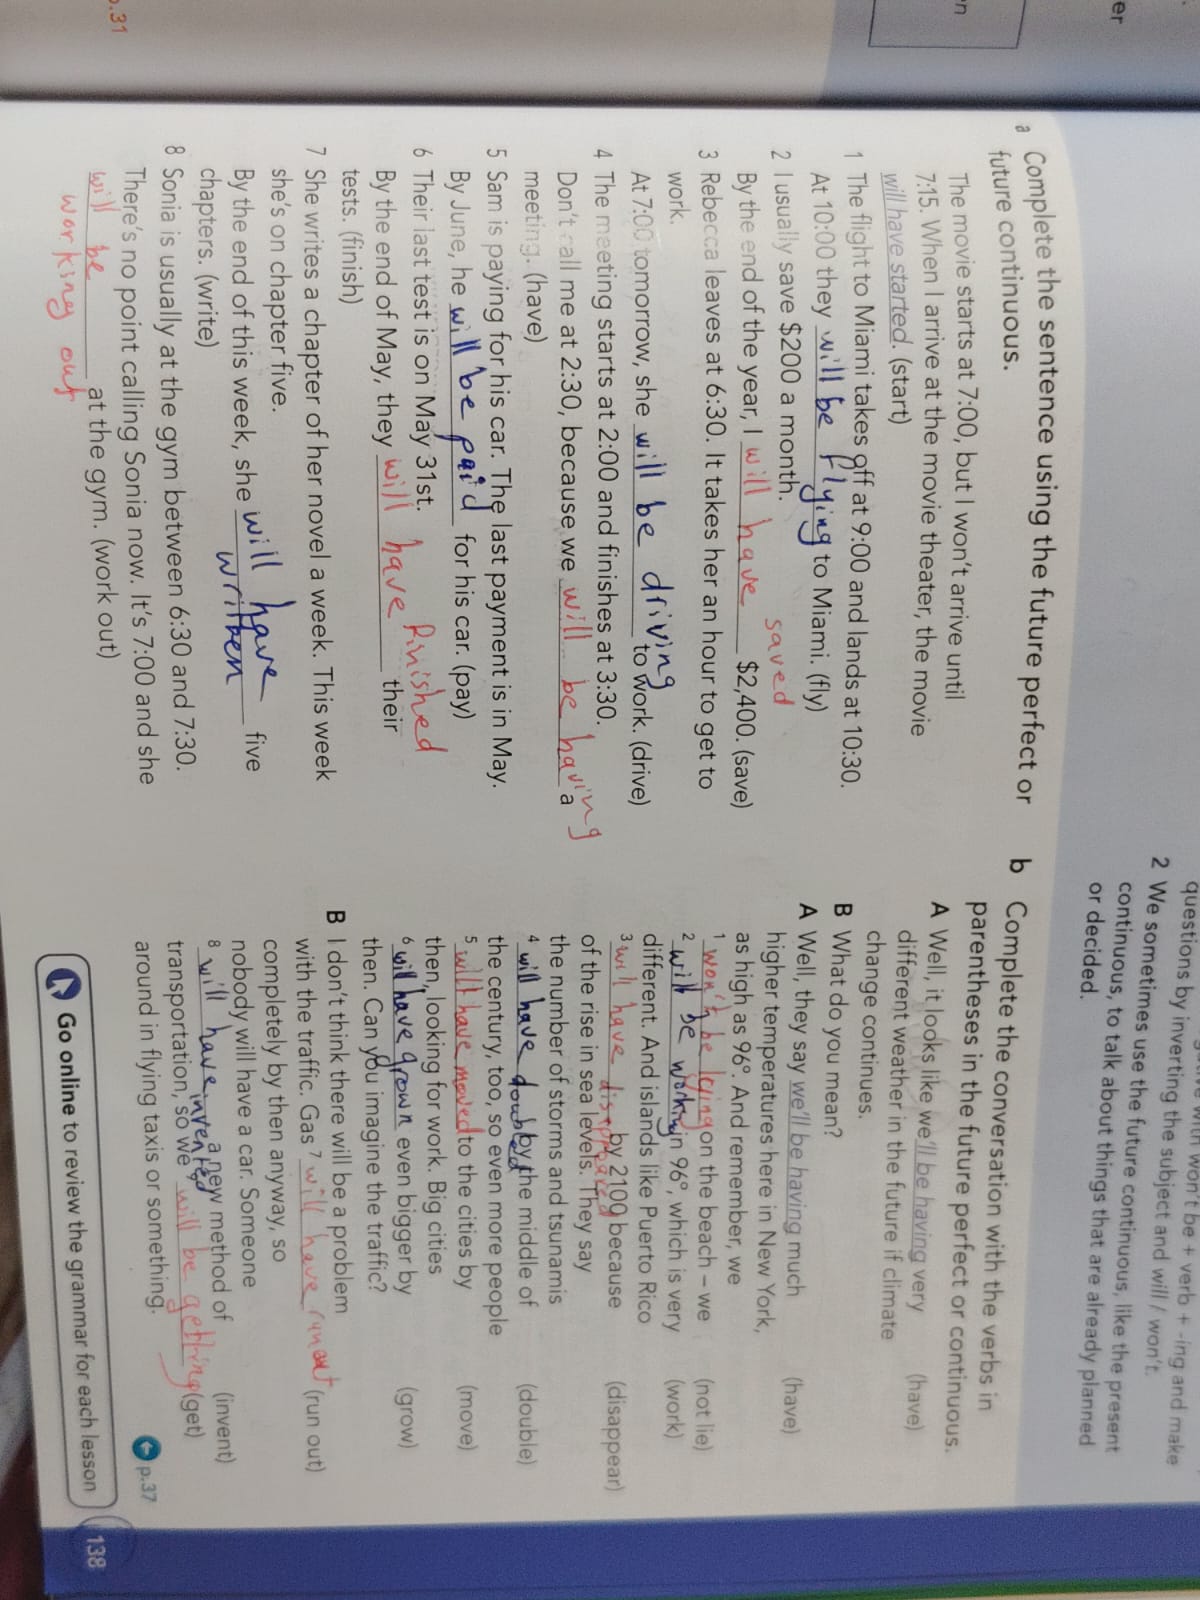 er
n
p.31
questions by inverting the subject and make
2 We sometimes use the future continuous, like the present
continuous, to talk about things that are already planned
or decided.
a Complete the sentence using the future perfect or
future continuous.
The movie starts at 7:00, but I won't arrive until
7:15. When I arrive at the movie theater, the movie
will have started. (start)
1 The flight to Miami takes off at 9:00 and lands at 10:30.
At 10:00 they will be flying to Miami. (fly)
2 I usually save $200 a month.
By the end of the year, I will have saved $2,400. (save)
3 Rebecca leaves at 6:30. It takes her an hour to get to
work.
At 7:00 tomorrow, she will be driving to work. (drive)
4 The meeting starts at 2:00 and finishes at 3:30.
Don't call me at 2:30, because we will be having a
meeting. (have)
5 Sam is paying for his car. The last payment is in May.
By June, he will be paid for his car. (pay)
6 Their last test is on May 31st.
By the end of May, they will have finished their
tests. (finish)
7 She writes a chapter of her novel a week. This week
she's on chapter five.
By the end of this week, she will have written five
chapters. (write)
8 Sonia is usually at the gym between 6:30 and 7:30.
There's no point calling Sonia now. It's 7:00 and she
will be working out at the gym. (work out)
b Complete the conversation with the verbs in
parentheses in the future perfect or continuous.
A Well, it looks like we'll be having very (have)
different weather in the future if climate
change continues.
B What do you mean?
A Well, they say we'll be having much (have)
higher temperatures here in New York,
as high as 96°. And remember, we
1 won't be lying on the beach – we (not lie)
2 will be working in 96°, which is very (work)
different. And islands like Puerto Rico
3 will have by 2100 because (disappear)
of the rise in sea levels. They say
the number of storms and tsunamis
4 will have doubled by the middle of (double)
the century, too, so even more people
5 will have moved to the cities by (move)
then, looking for work. Big cities
6 will have grown even bigger by (grow)
then. Can you imagine the traffic?
B I don't think there will be a problem
with the traffic. Gas 7 will have ran out (run out)
completely by then anyway, so
nobody will have a car. Someone
8 will have invented a new method of (invent)
transportation, so we will be getting (get)
around in flying taxis or something.
p.37
Go online to review the grammar for each lesson
138